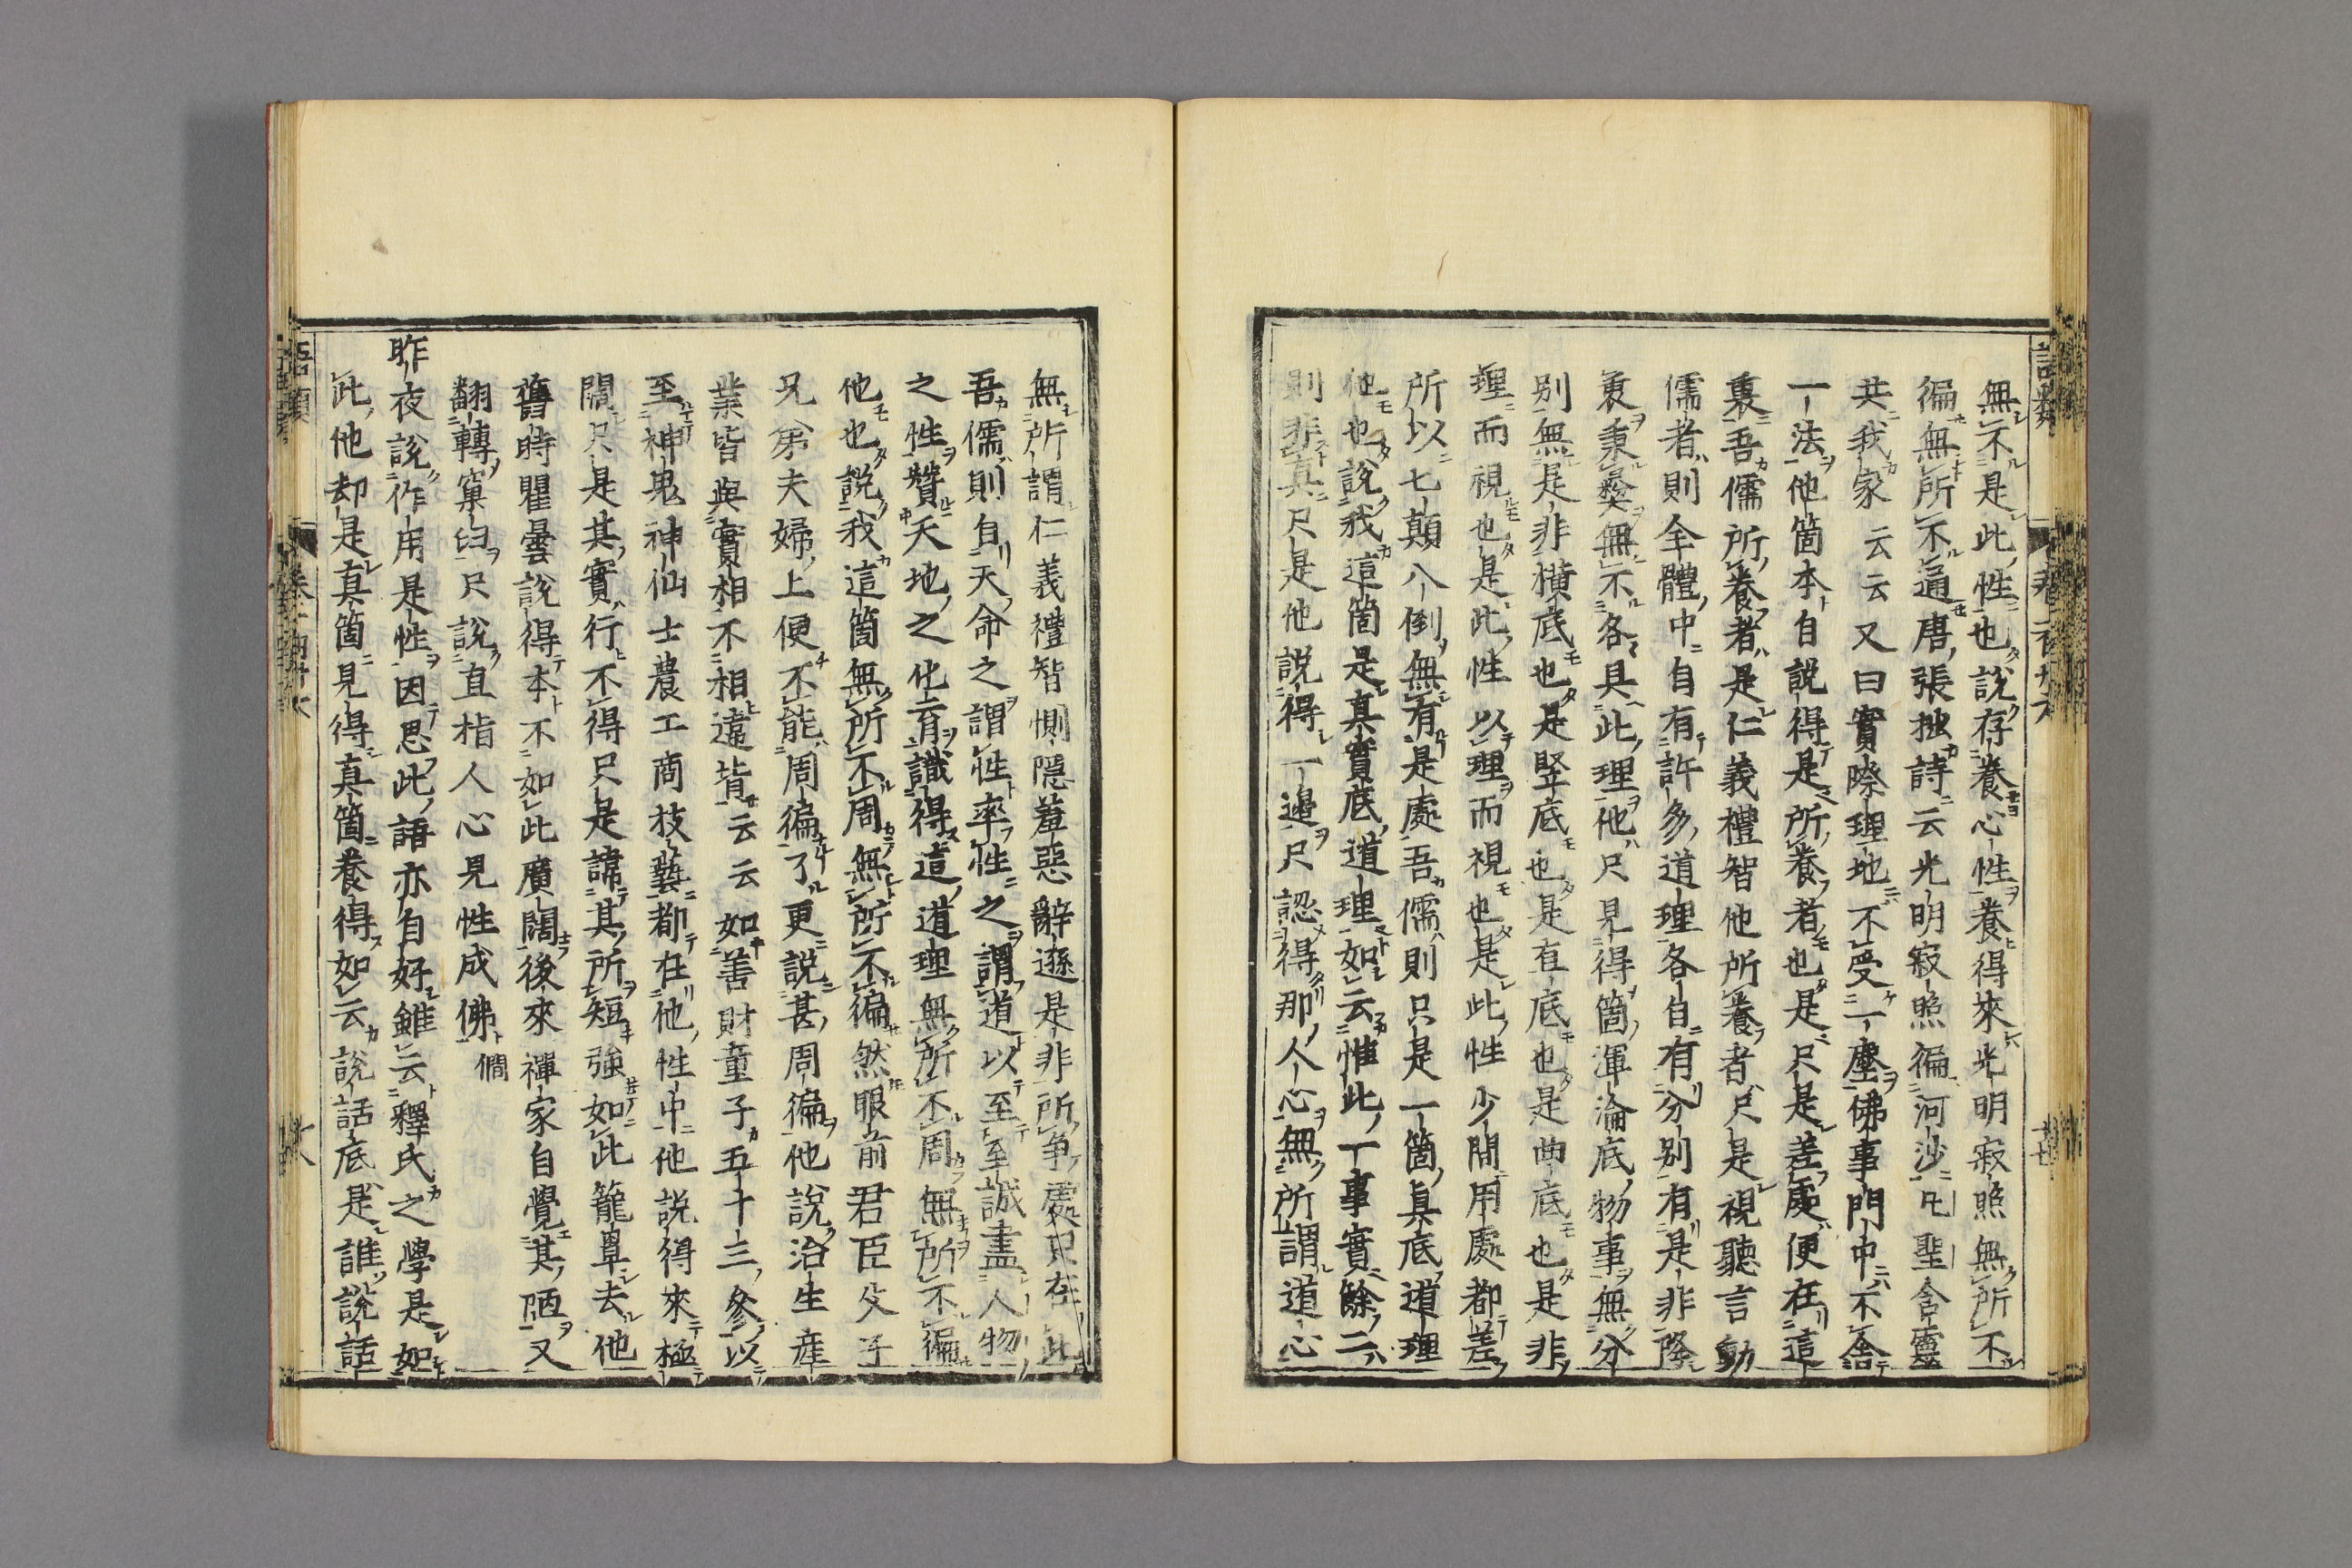 無不是此性也說存養心性養得來光明寂照無所不
徧無所不通唐張拙詩云光明寂照徧河沙凡聖含靈
共我家云云又曰實際理地不受一塵佛事門中不舍
一法他箇本自說得是所養者也是只是差處便在這
裏吾儒所養者是仁義禮智他所養者只是視聽言動
儒者則全體中自有許多道理各自有分別有是非降
衷秉彝無不各具此理他只見得箇渾淪底物事無分
别無是非橫底也是竪底也是直底也是曲底也是非
理而視也是此性以理而視也是此性少間用處都差
所以七顛八倒無有是處吾儒則只是一箇真底道理
他也說我這箇是真實底道理如云惟此一事實餘二
則非真只是他說得一邊只認得那人心無所謂道心
無所謂仁義禮智惻隱羞惡辭遜是非所爭處只在此
吾儒則自天命之謂性率性之謂道以至至誠盡人物
之性贊天地之化育識得這道理無所不周無所不徧
他也說我這箇無所不周無所不徧然眼前君臣父子
兄弟夫婦上便不能周徧了更說甚周徧他說治生產
業皆與實相不相違背云云如善財童子五十三參以
至神鬼神仙士農工商技藝都在他性中他說得來極
闊只是其實行不得只是諱其所短強如此籠罩去他
舊時瞿曇說得本不如此廣闊後來禪家自覺其陋又
翻轉窠臼只說直指人心見性成佛 僩
昨夜說作用是性因思此語亦自好雖云釋氏之學是如
此他却是真箇見得真箇養得如云說話底是誰說話